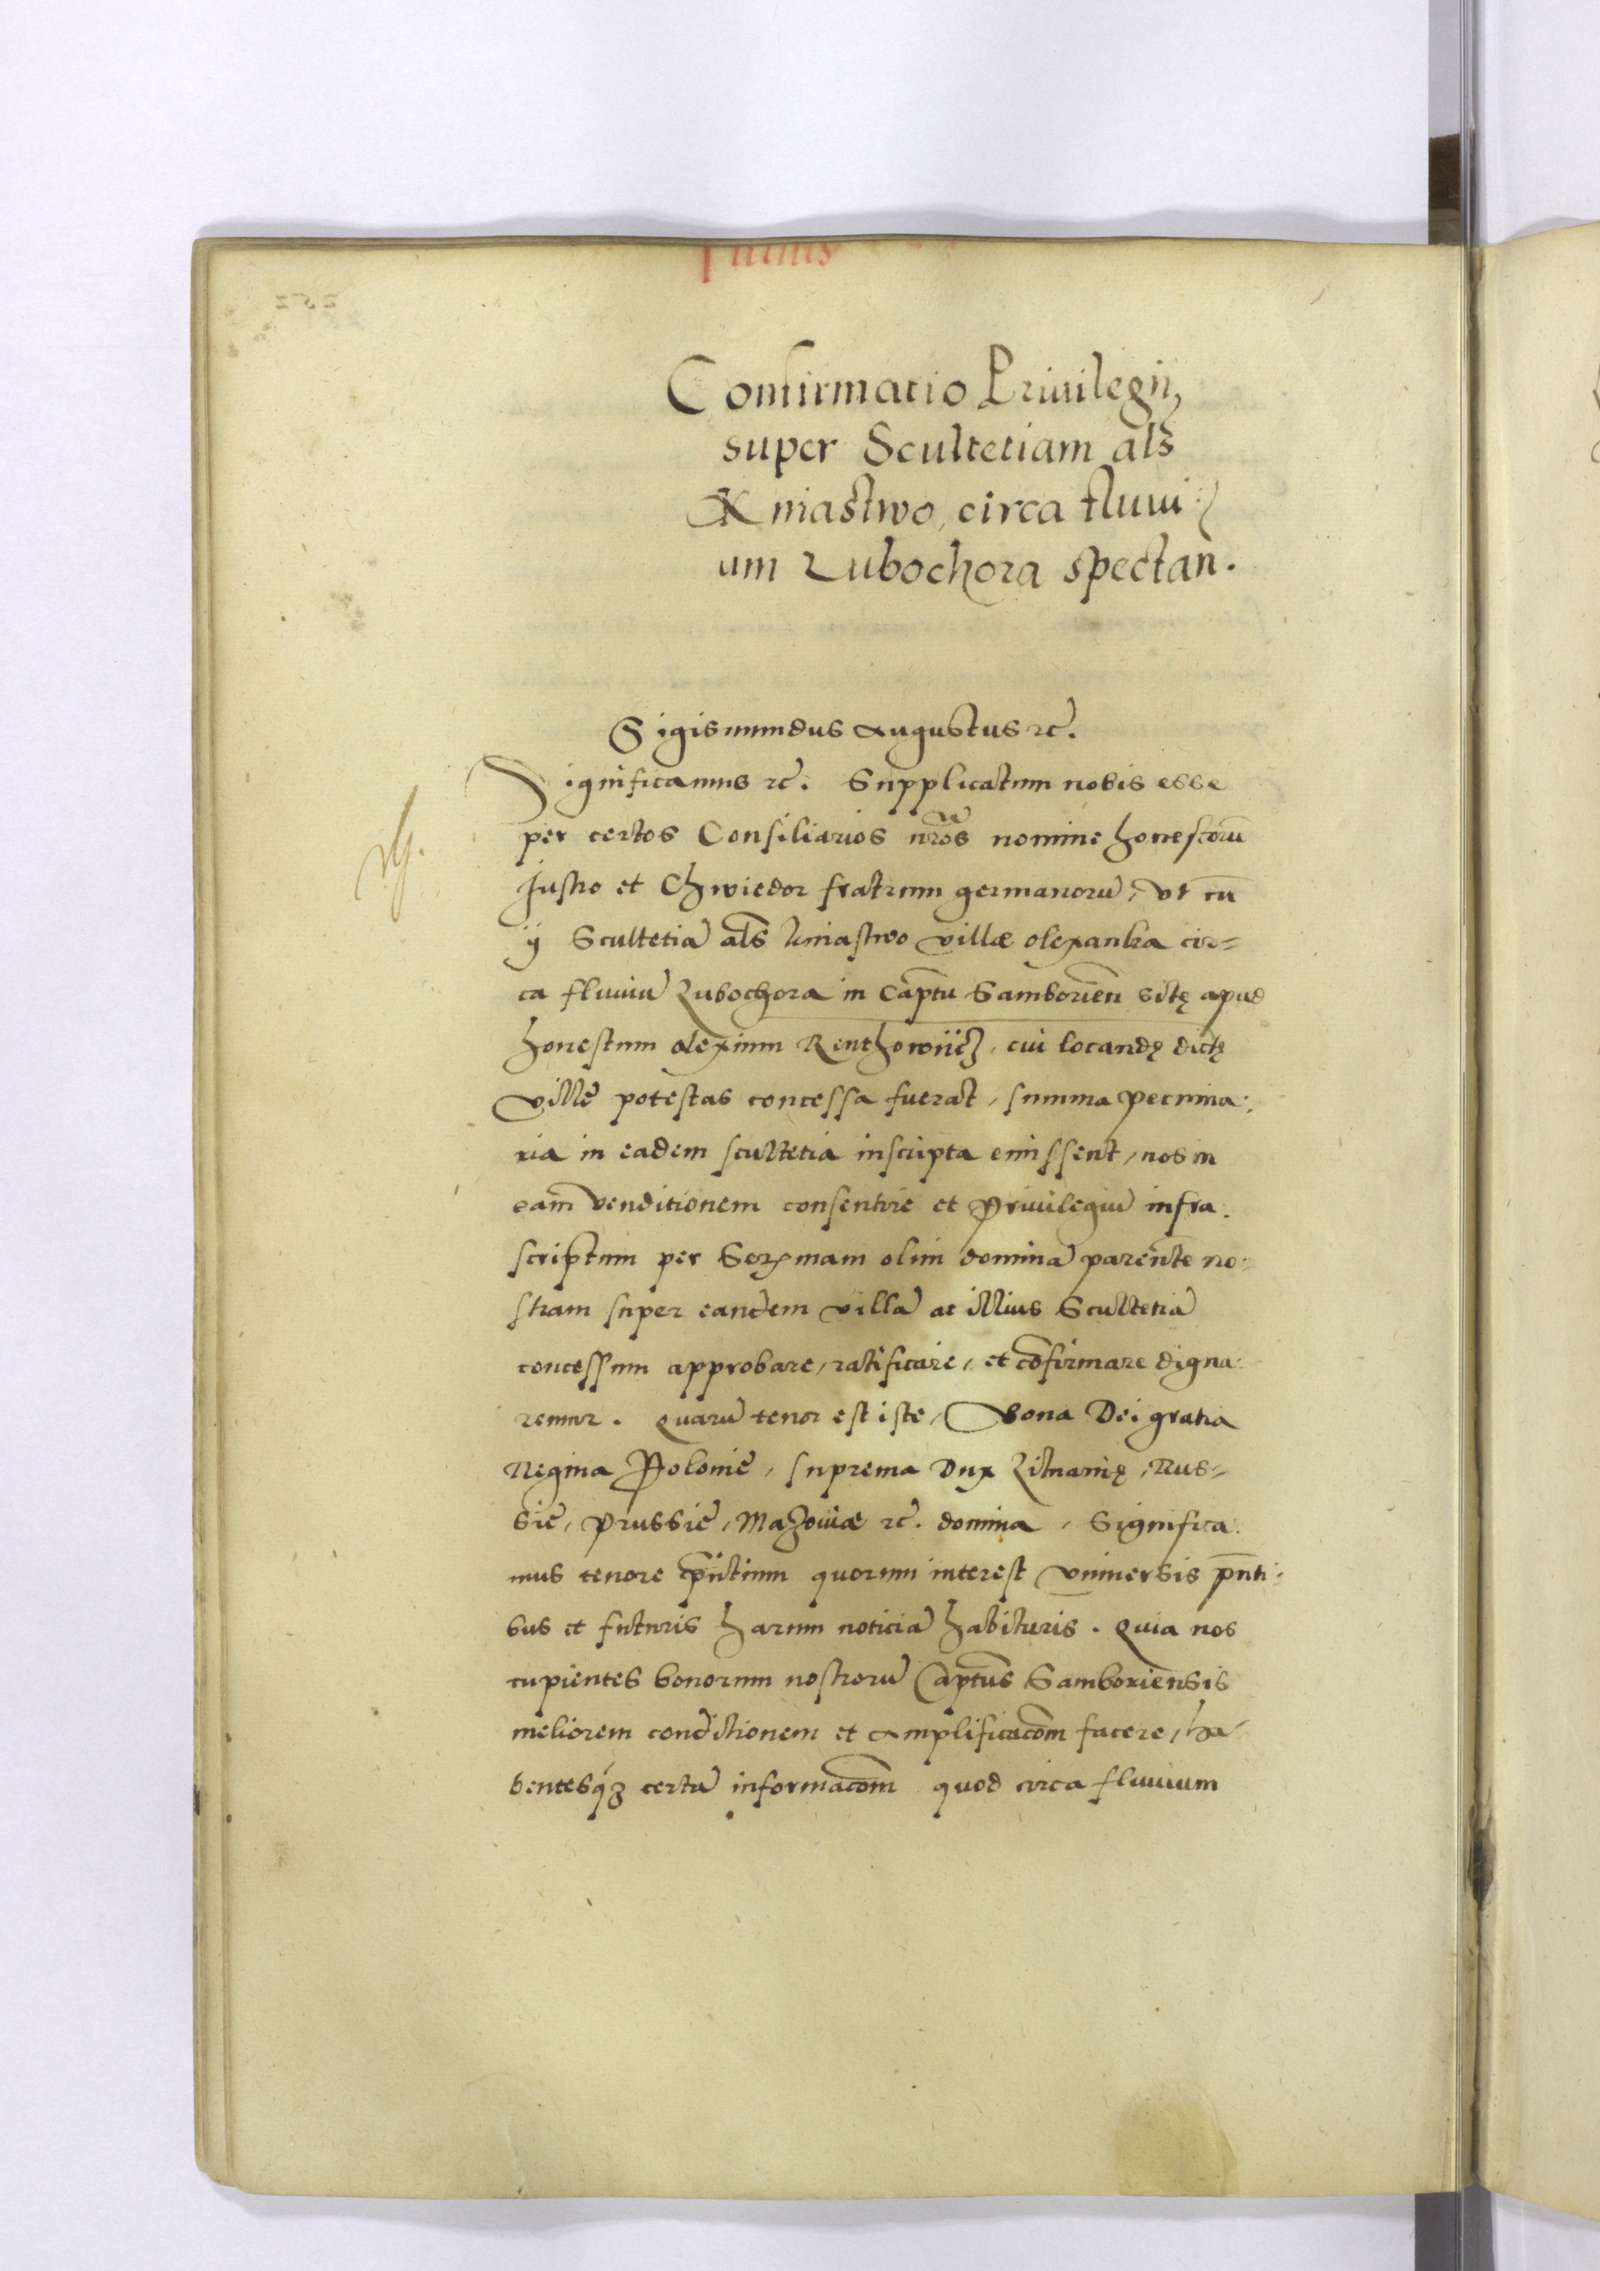 Confirmatio Priuilegij
super Scultetiam als
Kniastwo, circa fluui:
um Lubochora spectan.
Sigismundus Augustus rc̃.
Significamus rc̃. Supplicatum nobis esse
per certos Consiliarios nr̃os nomine honestorũ
Justro et Chwiedor fratrum germanorũ, vt cũ
ij Scultetiã als̃ kniastwo villæ olexanka cir-
ca fluuiũ Lubochora in Cap̃tu Samborień sitę apud
honestum olexium Renthowiicz, cui locandę dictę
villę potestas concessa fuerat, summa pecunia:
ria in eadem scultetia inscripta emissent, nos in
eam̃ venditionem consentire et Priuilegiũ infra:
scriptum per Serꝫmam olim dominã parentẽ no:
stram super eandem villã ac illius Scultetiã
concessum approbare, ratificare, et cõfirmare digna:
remur. Quarũ tenor est iste, Bona Dei gratia
Regina Polonię, suprema Dux Lituanię, Rus-
się, Prussię, Mazouiæ rc̃. domina, Significa:
mus tenore p̃ntium quorum interest vniuersis p̃nti:
bus et futuris harum noticiã habituris. Quia nos
cupientes bonorum nostrorũ Cap̃tus Samboriensis
meliorem conditionem et amplificacõm facere, ha-
bentesqꝫ certã informacõm quod circa fluuium